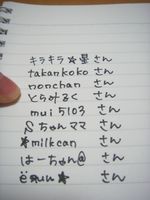 キラキラ☆星 さん
takankoko さん
nonchan さん
とらみるく さん
mui5103 さん
ちゃんママ さん
★milkcan さん
はーちゃん@ さん
さん